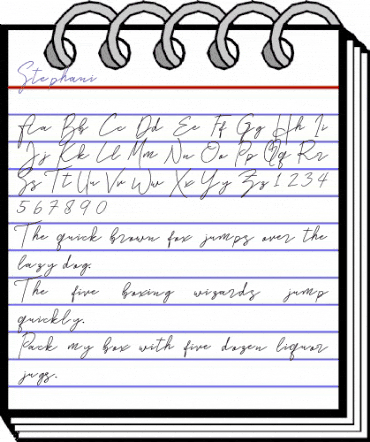 Stephani
Aa Bb Cc Dd Ee Ff Gg Hh Ii
Jj Kk Ll Mm Nn Oo Pp Qq Rr
Ss Tt Uu Vv Ww Xx Yy Zz 1 2 3 4
5 6 7 8 9 0
The quick brown fox jumps over the
lazy dog.
The five boxing wizards jump
quickly.
Pack my box with five dozen liquor
jugs.